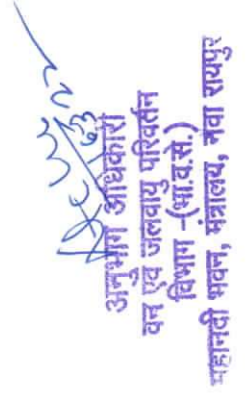 अनुभाग अधिकारी
वन एवं जलवायु परिवर्तन
विभाग -(भा.व.से.)
महानदी भवन, मंत्रालय, नवा रायपुर